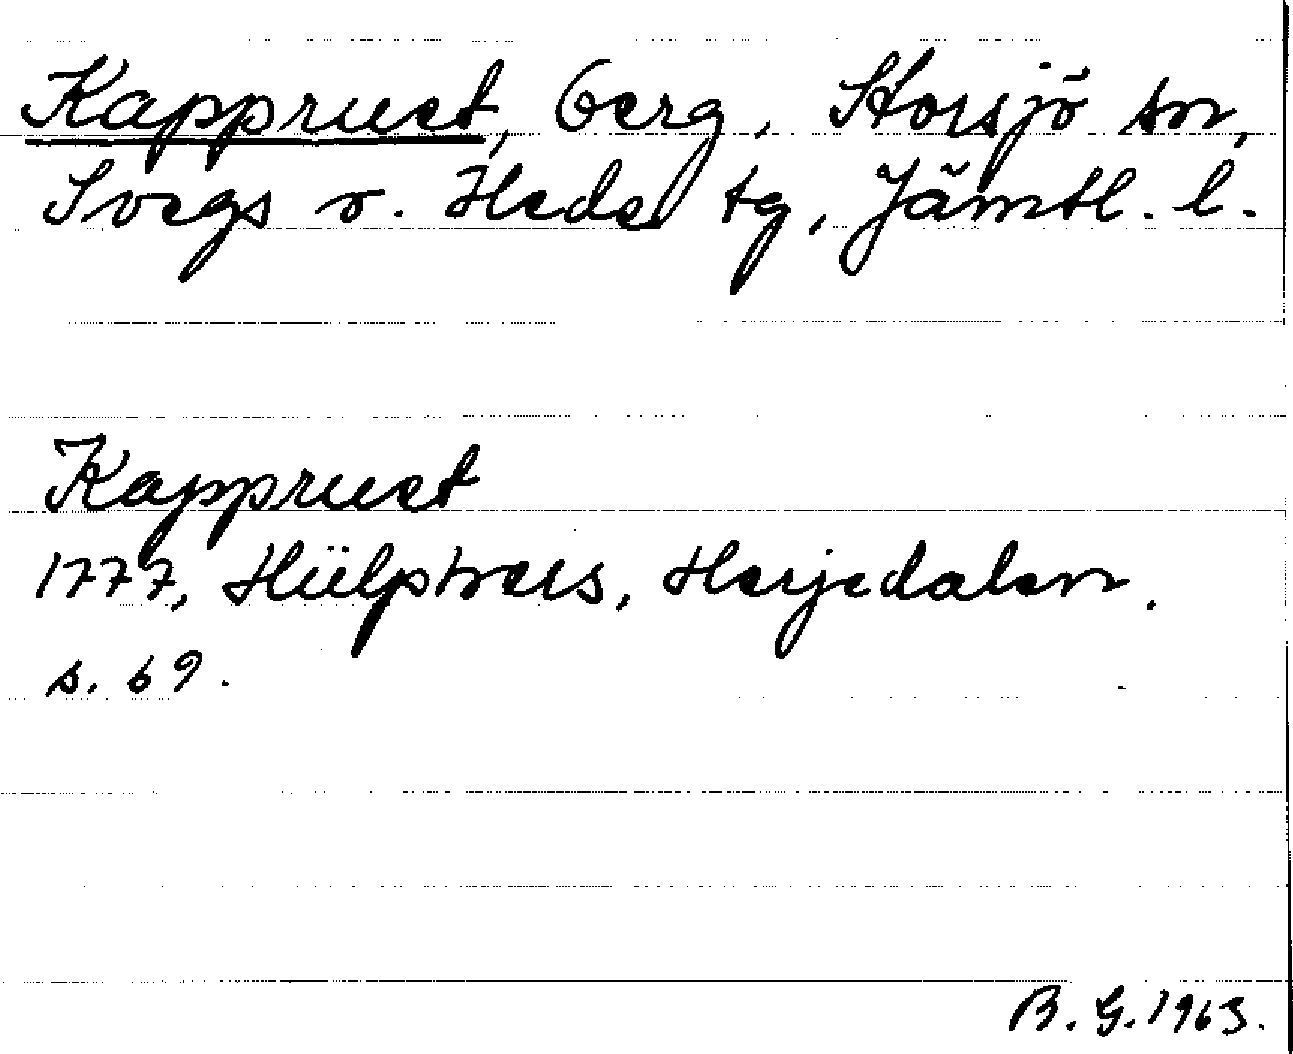 Kappruet, berg, Storsjö sn,
Svegs o. Hede tg, Jämtl. l.
Kappruet
1777, Hülphers, Herjedalen.
s. 69.
B. G. 1963.